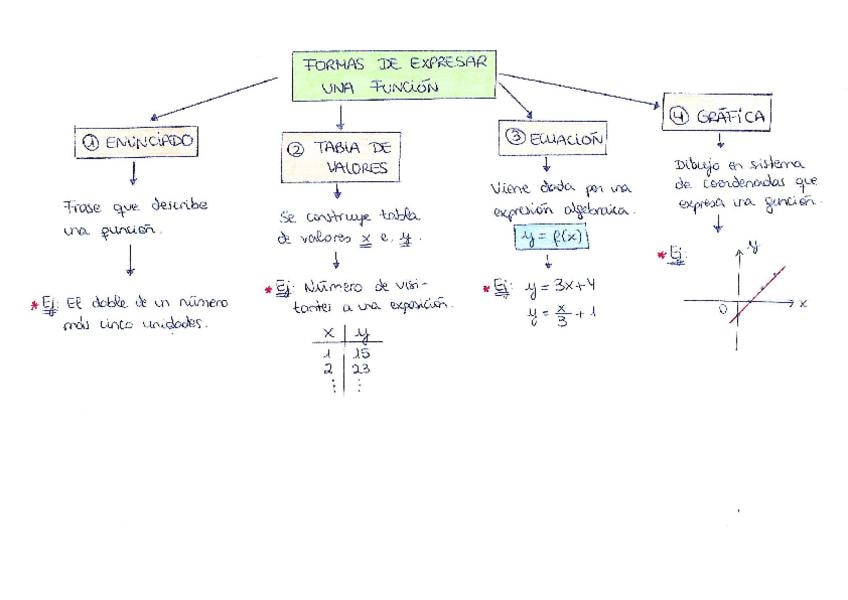 FORMAS DE EXPRESAR
UNA FUNCIÓN
① ENUNCIADO
Frase que describe
una función.
* Ej: El doble de un número
más cinco unidades.
② TABLA DE
VALORES
Se construye tabla
de valores x e y.
* Ej: Número de visi-
tantes a una exposición.
x | y
1 | 15
2 | 23
⋮ | ⋮
③ ECUACIÓN
Viene dada por una
expresión algebraica.
y = f(x)
* Ej: y = 3x+4
y = x/3 + 1
④ GRÁFICA
Dibujo en sistema
de coordenadas que
expresa una función.
* Ej:
y
0
x